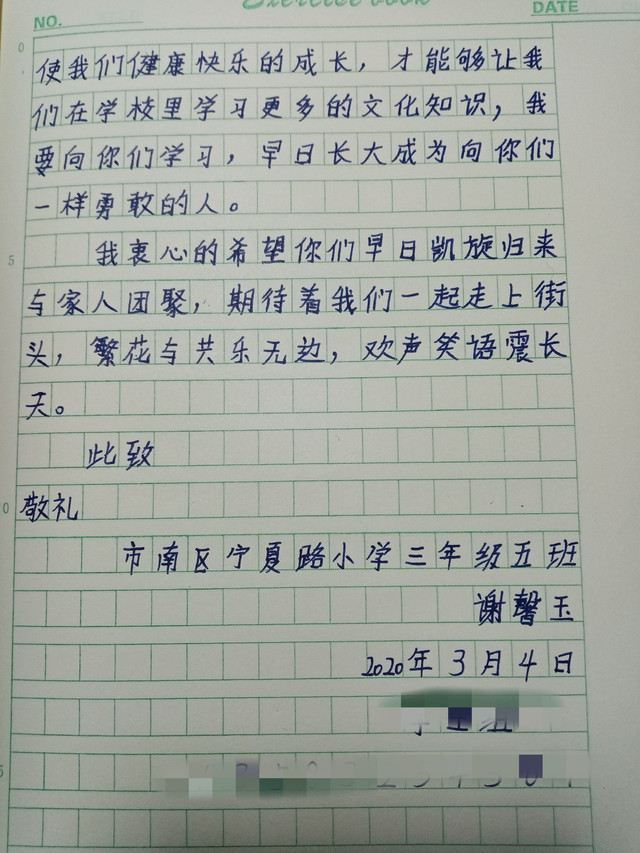 Exercise book
NO.
DATE
使我们健康快乐的成长，才能够让我
们在学校里学习更多的文化知识，我
要向你们学习，早日长大成为向你们
一样勇敢的人。
5
我衷心的希望你们早日凯旋归来
与家人团聚，期待着我们一起走上街
头，繁花与共乐无边，欢声笑语震长
天。
此致
0
敬礼
市南区宁夏路小学三年级五班
谢馨玉
2020年3月4日
5